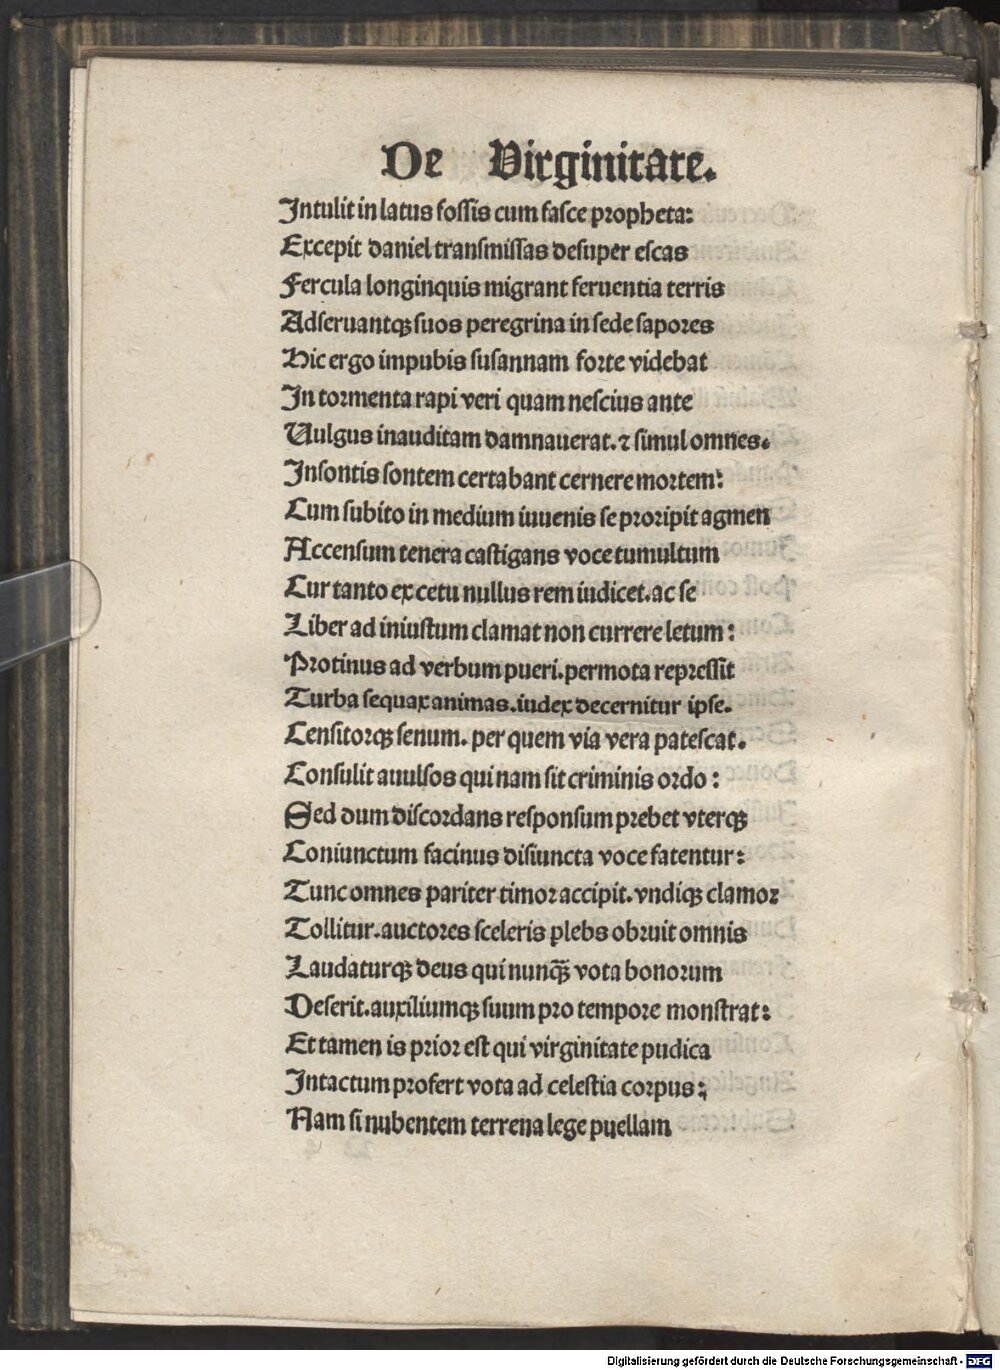 De Virginitate.
Intulit in latus fossis cum fasce propheta:
Excepit daniel transmissas desuper escas
Fercula longinquis migrant feruentia terris
Adseruantqꝫ suos peregrina in sede sapores
Hic ergo impubis susannam forte videbat
In tormenta rapi veri quam nescius ante
Vulgus inauditam damnauerat. ⁊ simul omnes.
Insontis sontem certabant cernere mortem:
Cum subito in medium iuuenis se proripit agmen
Accensum tenera castigans voce tumultum
Cur tanto ex cetu nullus rem iudicet. ac se
Liber ad iniustum clamat non currere letum:
Protinus ad verbum pueri. permota repressit
Turba sequax animas. iudex decernitur ipse.
Censitorqꝫ senum. per quem via vera patescat.
Consulit auulsos qui nam sit criminis ordo:
Sed dum discordans responsum prebet vterqꝫ
Coniunctum facinus disiuncta voce fatentur:
Tunc omnes pariter timor accipit. vndiqꝫ clamor
Tollitur. auctores sceleris plebs obruit omnis
Laudaturqꝫ deus qui nunqꝫ̄ vota bonorum
Deserit. auxiliumqꝫ suum pro tempore monstrat:
Et tamen is prior est qui virginitate pudica
Intactum profert vota ad celestia corpus:
Nam si nubentem terrena lege puellam
Digitalisierung gefördert durch die Deutsche Forschungsgemeinschaft - DFG